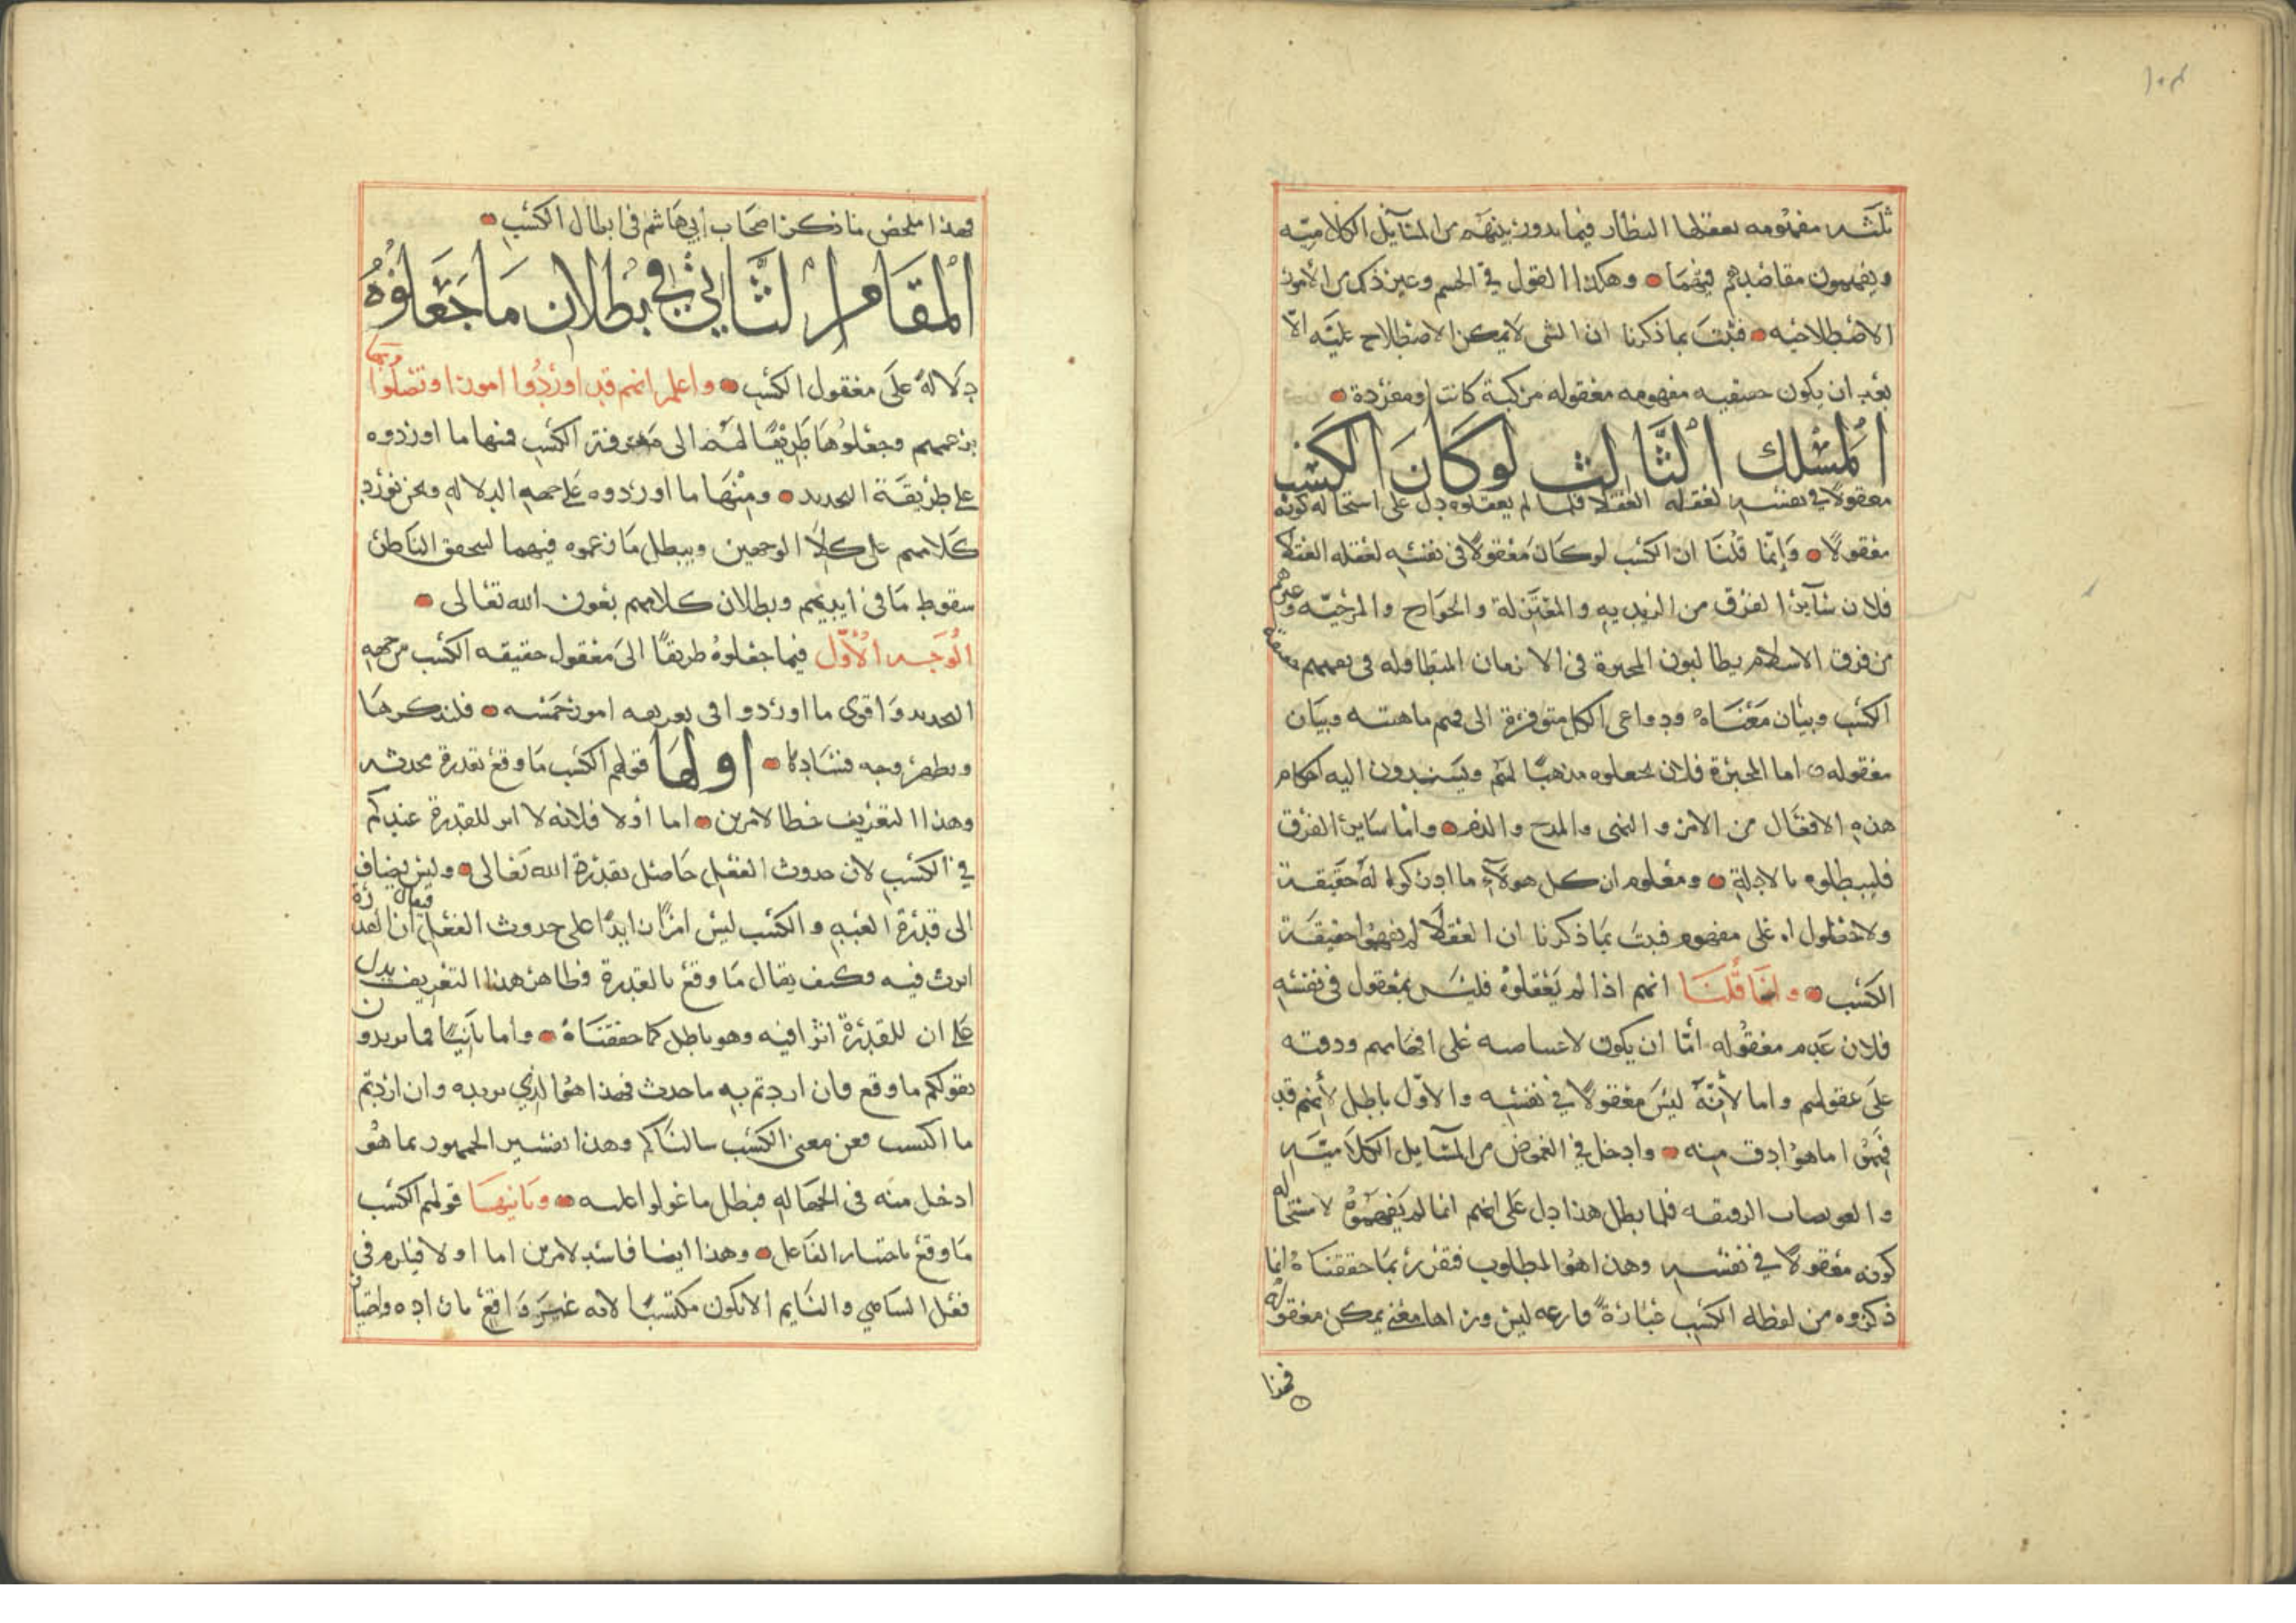 ١٠٣
ثلثه مفهومه يعقلها النظار فيما يدور بينهم من المسآيل الكلاميّه
ويفهمون مقاصدهم فيهما وهكذا القول في الجسم وغير ذلك من الأمور
الاصطلاحيه فثبت بما ذكرنا ان الشى لا يمكن الاصطلاح عليه الّا
بعد ان يكون حقيقيه مفهومه معقوله مركبة كانت او مفردة
المسلك الثالث لو كان الكسب
معقولا في نفسه لعقله العقلا فلما لم يعقلوه دل على استحاله كونه
معقولًا وإنما قلنا ان الكسب لو كان معقولًا في نفسه لعقله العقلا
فلان سآير الفرق من الزيديه والمعتزلة والخوارج والمرجيّه وغيرهم
من فرق الاسلام يطالبون المجبرة في الازمان المتطاوله في تفهيمهم حقيقة
الكسب وبيان معناه ودواعي الكل متوفرة الى فهم ماهيته وبيان
معقوله اما المجبرة فلان يجعلوه مذهبًا لهم ويسندون اليه احكام
هذه الافعال من الامر والنهى والمدح والذم واما ساير الفرق
فليبطلوه بالادلة ومعلوم ان كل هولآء ما ادركوا له حقيقة
ولا حصلوا له على مفهوم فثبت بما ذكرنا ان العقلا لم يفهموا حقيقة
الكسب وانما قلنا انهم اذا لم يعقلوه فليس بمعقول في نفسه
فلان عدم معقوله أمّا ان يكون لاعتياصه على افهامهم ودقته
على عقولهم واما لأنّه ليس معقولًا في نفسه والاوّل باطل لأنهم قد
فهموا ما هو ادق منه وادخل في الغموض من المسآيل الكلاميّه
والعويصات الدقيقه فلما بطل هذا دل على انهم انما لم يفهموه لاستحاله
كونه معقولًا في نفسه وهذا هو المطلوب فتقرر بما حققناه انما
ذكروه من لفظه الكسب عبارةً فارغه ليس وراها معنى يمكن معقوله
فهذا
فهذا ملخص ما ذكره اصحاب ابي هاشم في ابطال الكسب
المقام الثاني في بطلان ما جعلوه
دلالةً على معقول الكسب واعلم انهم قد اوردوا امورا وتصلوا بها
بزعمهم وجعلوها طريقًا لهم الى معرفة الكسب فمنها ما اوردوه
على طريقة التحديد ومنها ما اوردوه على جهه الدلاله ونحن نورد
كلامهم على كلا الوجهين ويبطل ما زعموه فيهما ليتحقق الناظر
سقوط ما في ايديهم وبطلان كلامهم بعون الله تعالى
الوجه الأول فيما جعلوه طريقًا الى معقول حقيقه الكسب من جهه
التحديد واقوى ما اوردوا في تعريفه امور خمسه فلنذكرها
ونظهر وجه فسادها اولها قولهم الكسب ما وقع بقدرة محدثه
وهذا التعريف خطا لامرين اما أولا فلانه لا اثر للقدرة عندكم
في الكسب لان حدوث الفعل حاصل بقدرة الله تعالى وليس يضاف
الى قدرة العبد والكسب ليس امرًا زايدًا على حدوث الفعل فيقال ان القدرة
اثرت فيه فكيف يقال ما وقع بالقدرة فظاهر هذا التعريف يدل
على ان للقدرة اثرا فيه وهو باطل كما حققناه واما ثانيًا فما تريدون
بقولكم ما وقع فان اردتم به ما حدث فهذا هو الذي نريده وان اردتم
ما اكتسب فعن معنى الكسب سالناكم وهذا تفسير المجهور بما هو
ادخل منه في الجهاله فبطل ما عولوا عليه وثانيها قولهم الكسب
ما وقع باختيار الفاعل وهذا ايضا فاسد لامرين اما اولا فيلزم في
فعل الساهي والنايم الا يكون مكتسبًا لانه غير واقع بارادته واختياره